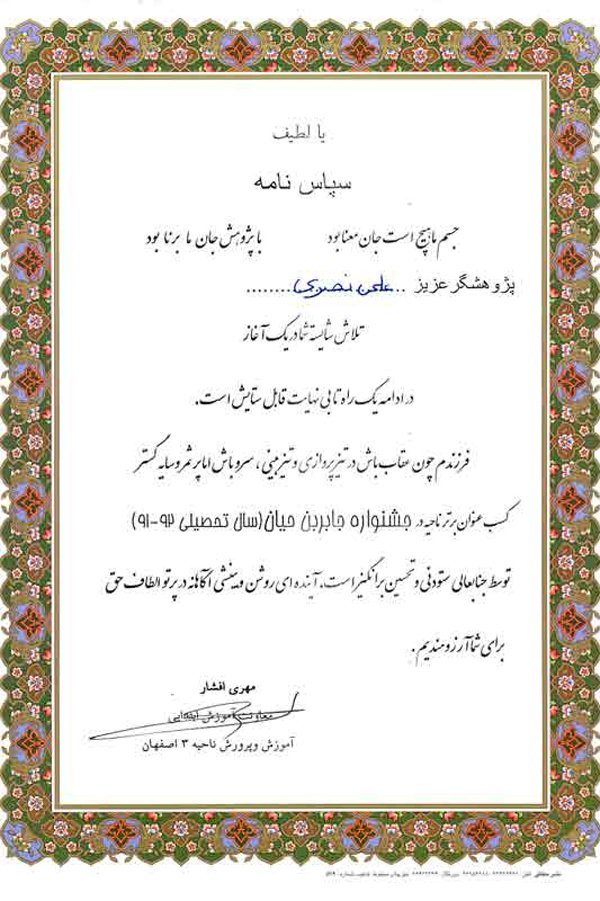 یا لطیف
سپاس نامه
جسم ما هیچ است جان معنا بود با پژوهش جان ما برنا بود
پژوهشگر عزیز ..علی نصیری........
تلاش شایسته شما در یک آغاز
در ادامه یک راه تا بی نهایت قابل ستایش است.
فرزندم چون عقاب باش در تیزپروازی و تیزبینی، سرو باش اما پر ثمر و سایه گستر
کسب عنوان برتر ناحیه در جشنواره جابربن حیان(سال تحصیلی ۹۲-۹۱)
توسط جنابعالی ستودنی و تحسین برانگیز است، آینده ای روشن و بینشی آگاهانه در پرتو الطاف حق
برای شما آرزومندیم.
مهری افشار
معاونت آموزش ابتدایی
آموزش وپرورش ناحیه ۳ اصفهان